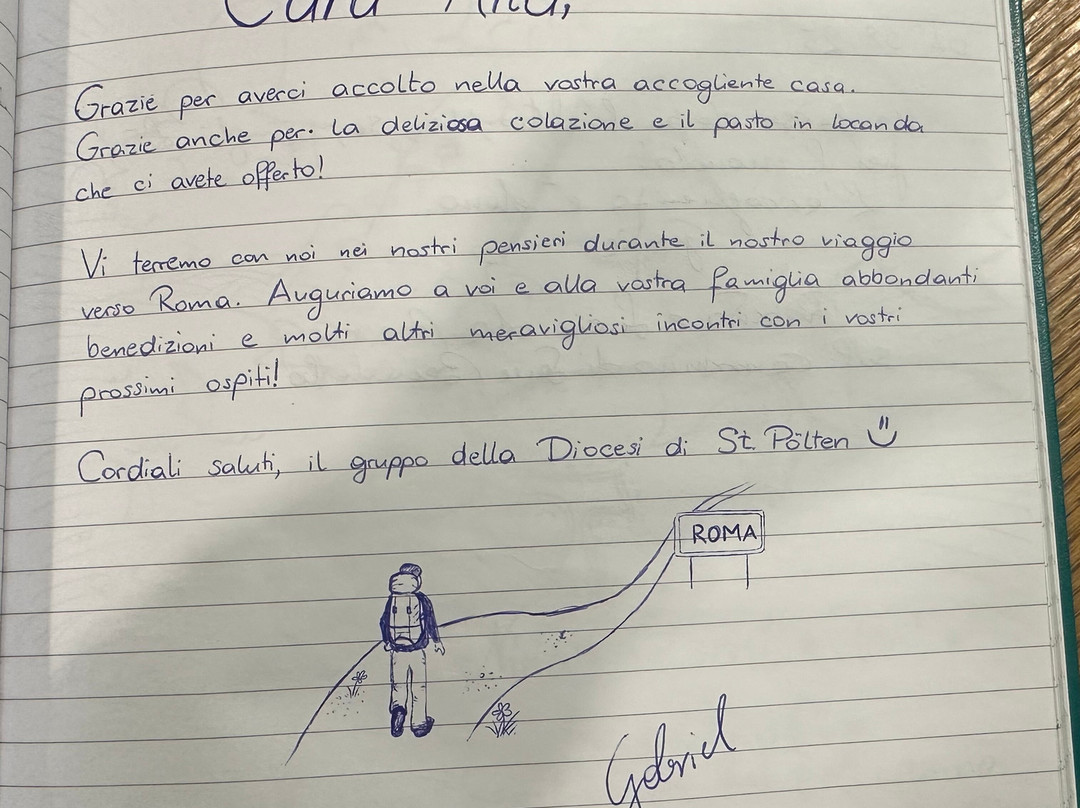 Cara
Grazie per averci accolto nella vostra accogliente casa.
Grazie anche per la deliziosa colazione e il pasto in locanda
che ci avete offerto!
Vi terremo con noi nei nostri pensieri durante il nostro viaggio
verso Roma. Auguriamo a voi e alla vostra famiglia abbondanti
benedizioni e molti altri meravigliosi incontri con i vostri
prossimi ospiti!
Cordiali saluti, il gruppo della Diocesi di St. Pölten
ROMA
Gabriel